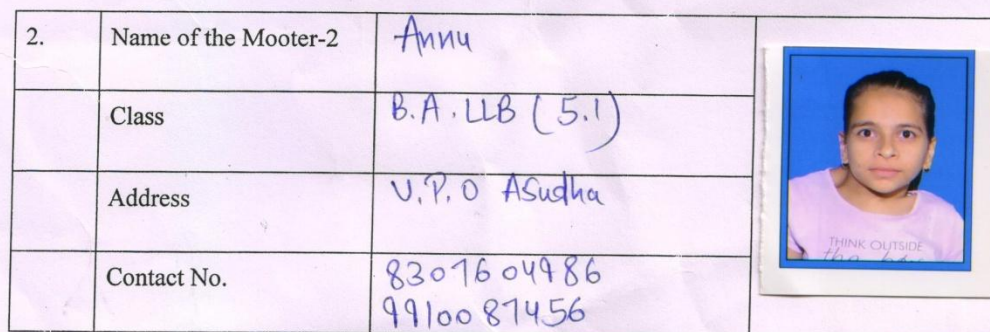 2. Name of the Mooter-2 Annu
Class B.A. LLB (5.1)
Address V.P.O Asudha
Contact No. 8307604986
9910087456
THINK OUTSIDE
the box